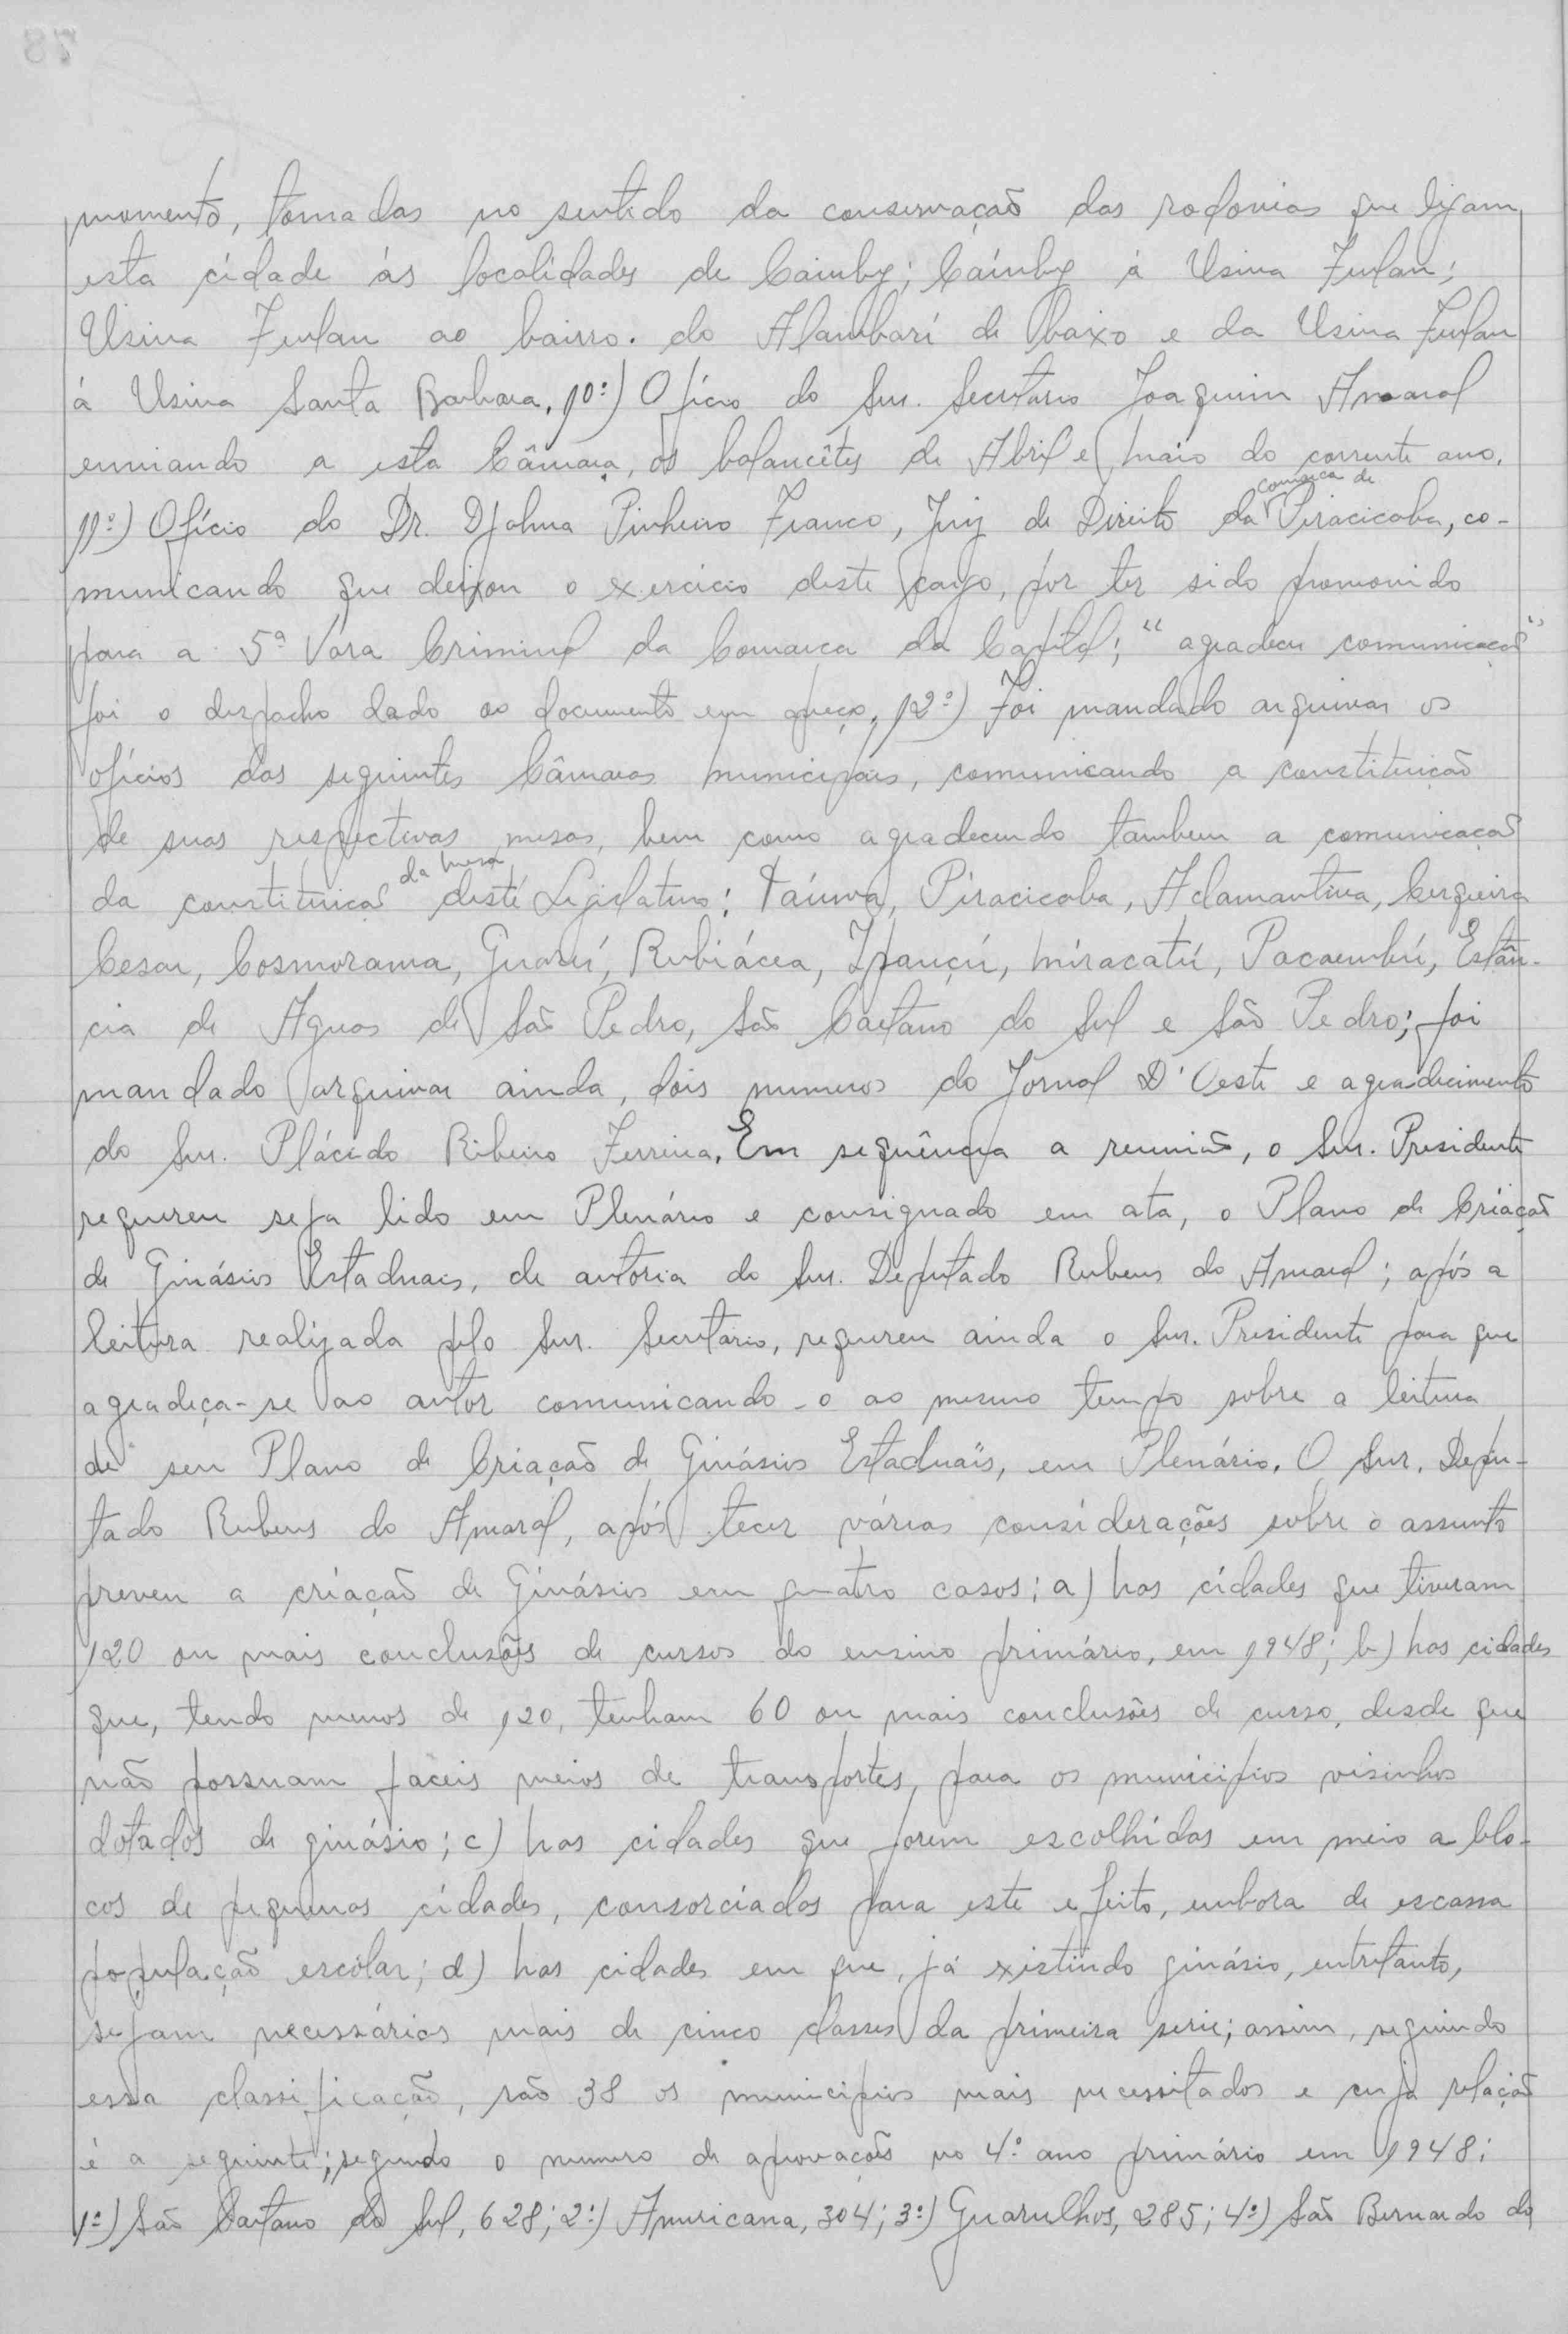 momento, tomadas no sentido da conservação das rodovias que ligam
esta cidade ás localidades de Cainby; Cainby á Usina Furlan;
Usina Furlan ao bairro. do Alambarí de baixo e da Usina Furlan
á Usina Santa Barbara. 10º) Ofício do Snr. Secretario Joaquim Amaral
enviando a esta Câmara, os balancêtes de Abril e Maio do corrente ano.
11º) Ofício do Dr. Djalma Pinheiro Franco, Juiz de Direito da comarca de Piracicaba, co-
municando que deixou o exercicio deste cargo, por ter sido promovido
para a 5ª Vara Criminal da Comarca da Capital; "agradecer comunicação"
foi o despacho dado ao documento em apreço. 12º) Foi mandado arquivar os
ofícios das seguintes Câmaras Municipais, comunicando a constituição
de suas respectivas mesas, bem como agradecendo tambem a comunicação
da constituição da Mesa deste Legislativo: Taiuva, Piracicaba, Adamantina, Cerqueira
Cesar, Cosmorama, Guararí, Rubiácea, Ipauçú, Miracatú, Pacaembú, Estân-
cia de Aguas de São Pedro, São Caetano do Sul e São Pedro; foi
mandado arquivar ainda, dois numeros do Jornal D'Oeste e agradecimento
do Snr. Plácido Ribeiro Ferreira. Em sequência a reunião, o Snr. Presidente
requereu seja lido em Plenário e consignado em ata, o Plano de Criação
de Ginásios Estaduais, de autoria do Snr. Deputado Rubens do Amaral; após a
leitura realizada pelo Snr. Secretário, requereu ainda o Snr. Presidente para que
agradeça-se ao autor comunicando-o ao mesmo tempo sobre a leitura
de seu Plano de Criação de Ginásios Estaduais, em Plenário. O Snr. Depu-
tado Rubens do Amaral, após tecer várias considerações sobre o assunto
preveu a criação de Ginásios em quatro casos: a) Nas cidades que tiveram
120 ou mais conclusões de cursos do ensino primário, em 1948; b) Nas cidades
que, tendo menos de 120, tenham 60 ou mais conclusões de curso, desde que
não possuam faceis meios de transportes, para os municipios visinhos
dotados de ginásio; c) Nas cidades que forem escolhidas em meio a blo-
cos de pequenas cidades, consorciadas para este efeito, embora de escassa
população escolar; d) Nas cidades em que, já existindo ginásio, entretanto,
sejam necessárias mais de cinco classes da primeira serie; assim, seguindo
essa classificação, são 38 os municipios mais necessitados e cuja relação
é a seguinte; segundo o numero de aprovações no 4º ano primário em 1948:
1º) São Caetano do Sul, 628; 2º) Americana, 304; 3º) Guarulhos, 285; 4º) São Bernardo do